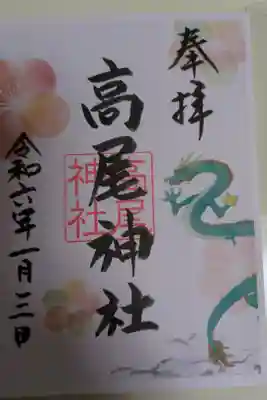 奉拝
高尾神社
高尾神社
令和六年一月三日